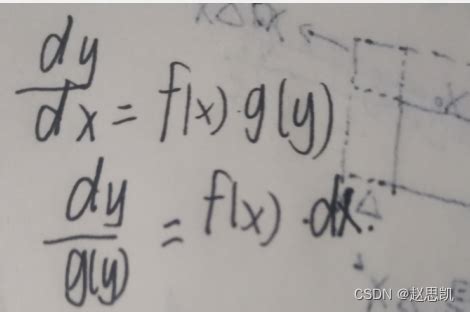 dy/dx = f(x)·g(y)
dy/g(y) = f(x)·dx.
CSDN @赵思凯